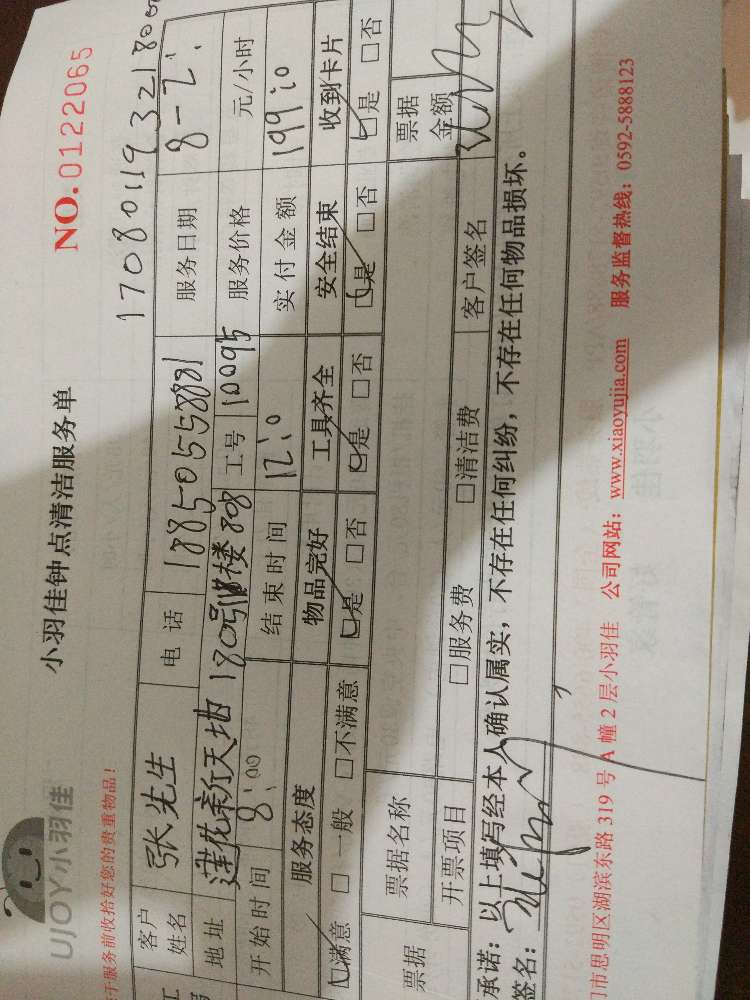 UJOY小羽佳
小羽佳钟点清洁服务单
NO.0122065
于服务前收拾好您的贵重物品！
170801193218000
客户姓名 张先生 电话 18850558881 服务日期 8-2
地址 莲花新天地180号 楼808 工号 10095 服务价格 元/小时
开始时间 8:00 结束时间 12:0 实付金额 199:0
服务态度 物品完好 工具齐全 安全结束 收到卡片
满意 一般 不满意 是 否 是 否 是 否 是 否
票据 票据名称 票据金额
开票项目 服务费 清洁费 客户签名
承诺：以上填写经本人确认属实，不存在任何纠纷，不存在任何物品损坏。
签名：
门市思明区湖滨东路 319 号 A 幢 2 层小羽佳 公司网站：www.xiaoyujia.com 服务监督热线：0592-5888123